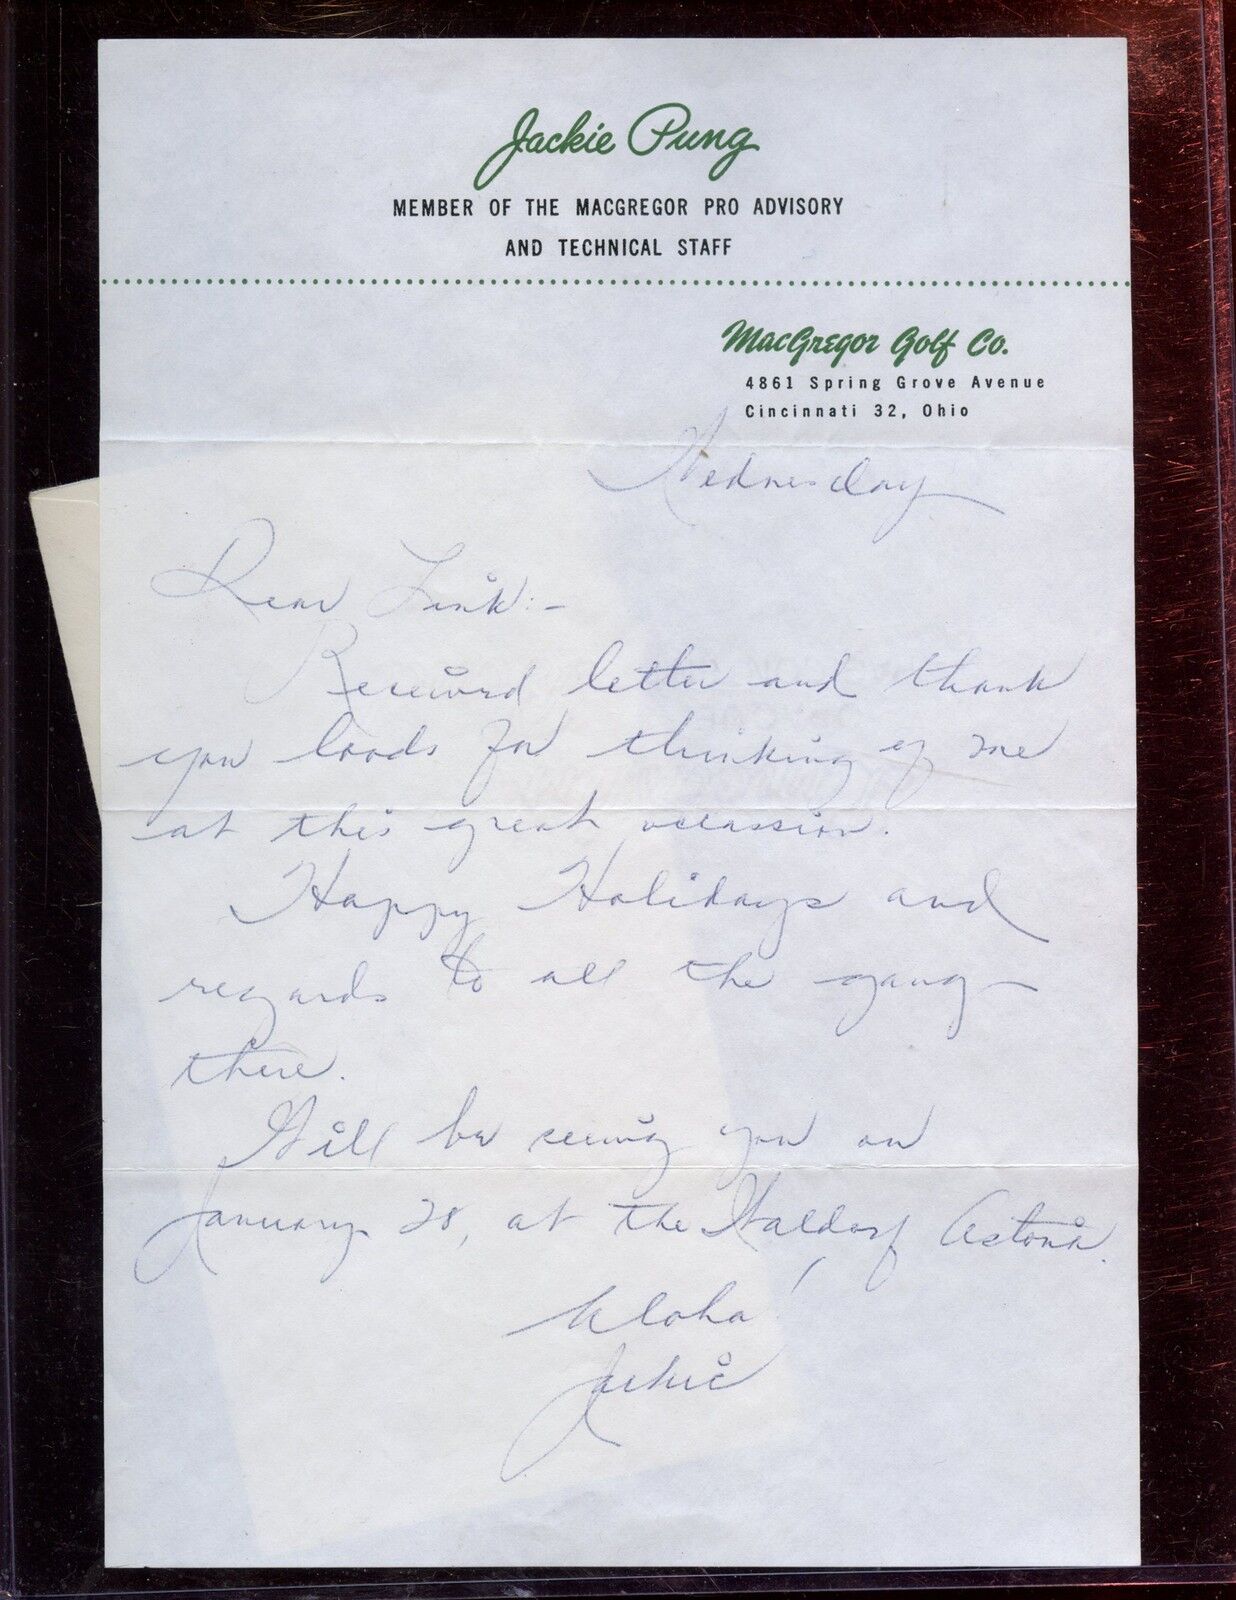 Jackie Pung
MEMBER OF THE MACGREGOR PRO ADVISORY
AND TECHNICAL STAFF
MacGregor Golf Co.
4861 Spring Grove Avenue
Cincinnati 32, Ohio
Wednesday
Dear Link:-
Received letter and thank
you loads for thinking of me
at this great occassion.
Happy Holidays and
regards to all the gang
there.
Will be seeing you on
January 28, at the Waldorf Astoria.
Aloha!
Jackie